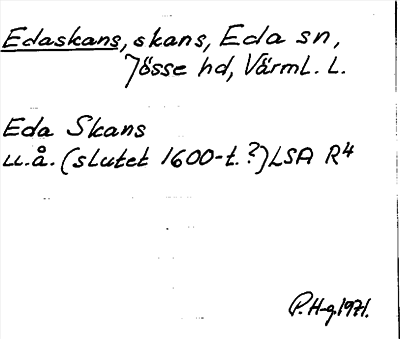 Edaskans, skans, Eda sn,
Jösse hd, Värml. L.
Eda Skans
u.å. (slutet 1600-t.?) LSA R4
P. H-g. 1971.